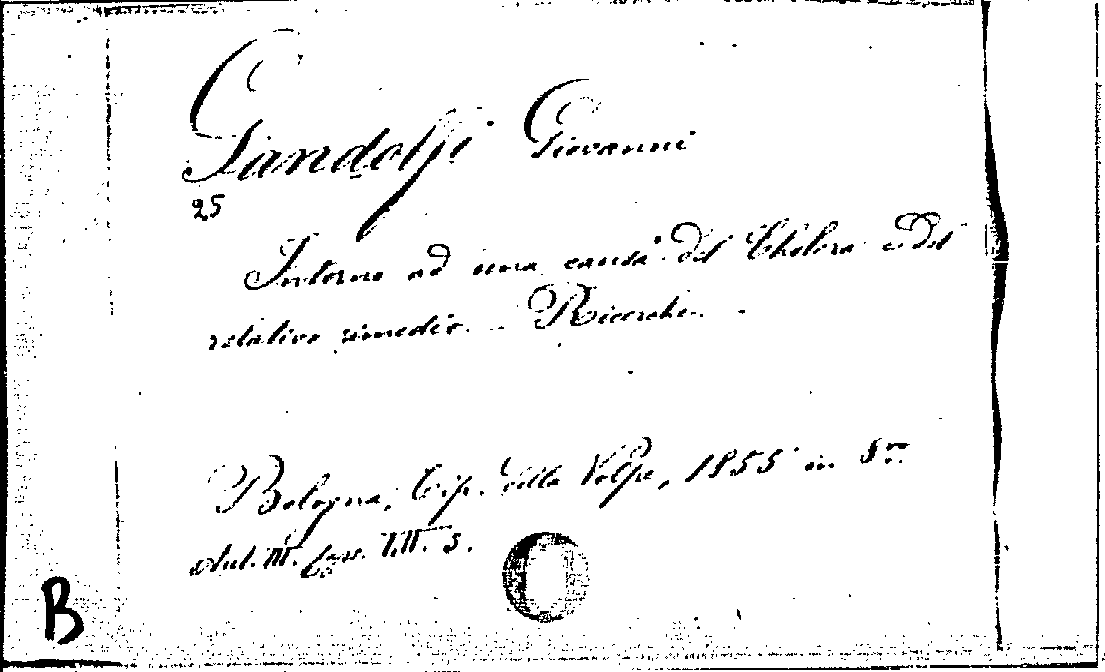 Gandolfi Giovanni
25
Intorno ad una causa del Cholera e del
relativo rimedio. - Ricerche. -
Bologna, Tip. della Volpe, 1855 in 8vo.
Aul. M. fasc. VIII. 3.
B